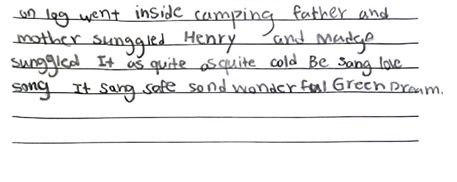 on log went inside camping father and
mother sunggled Henry and Madge
sunggled It as quite asquite cold Be sang love
song It sang safe sond wonderful Green Dream.